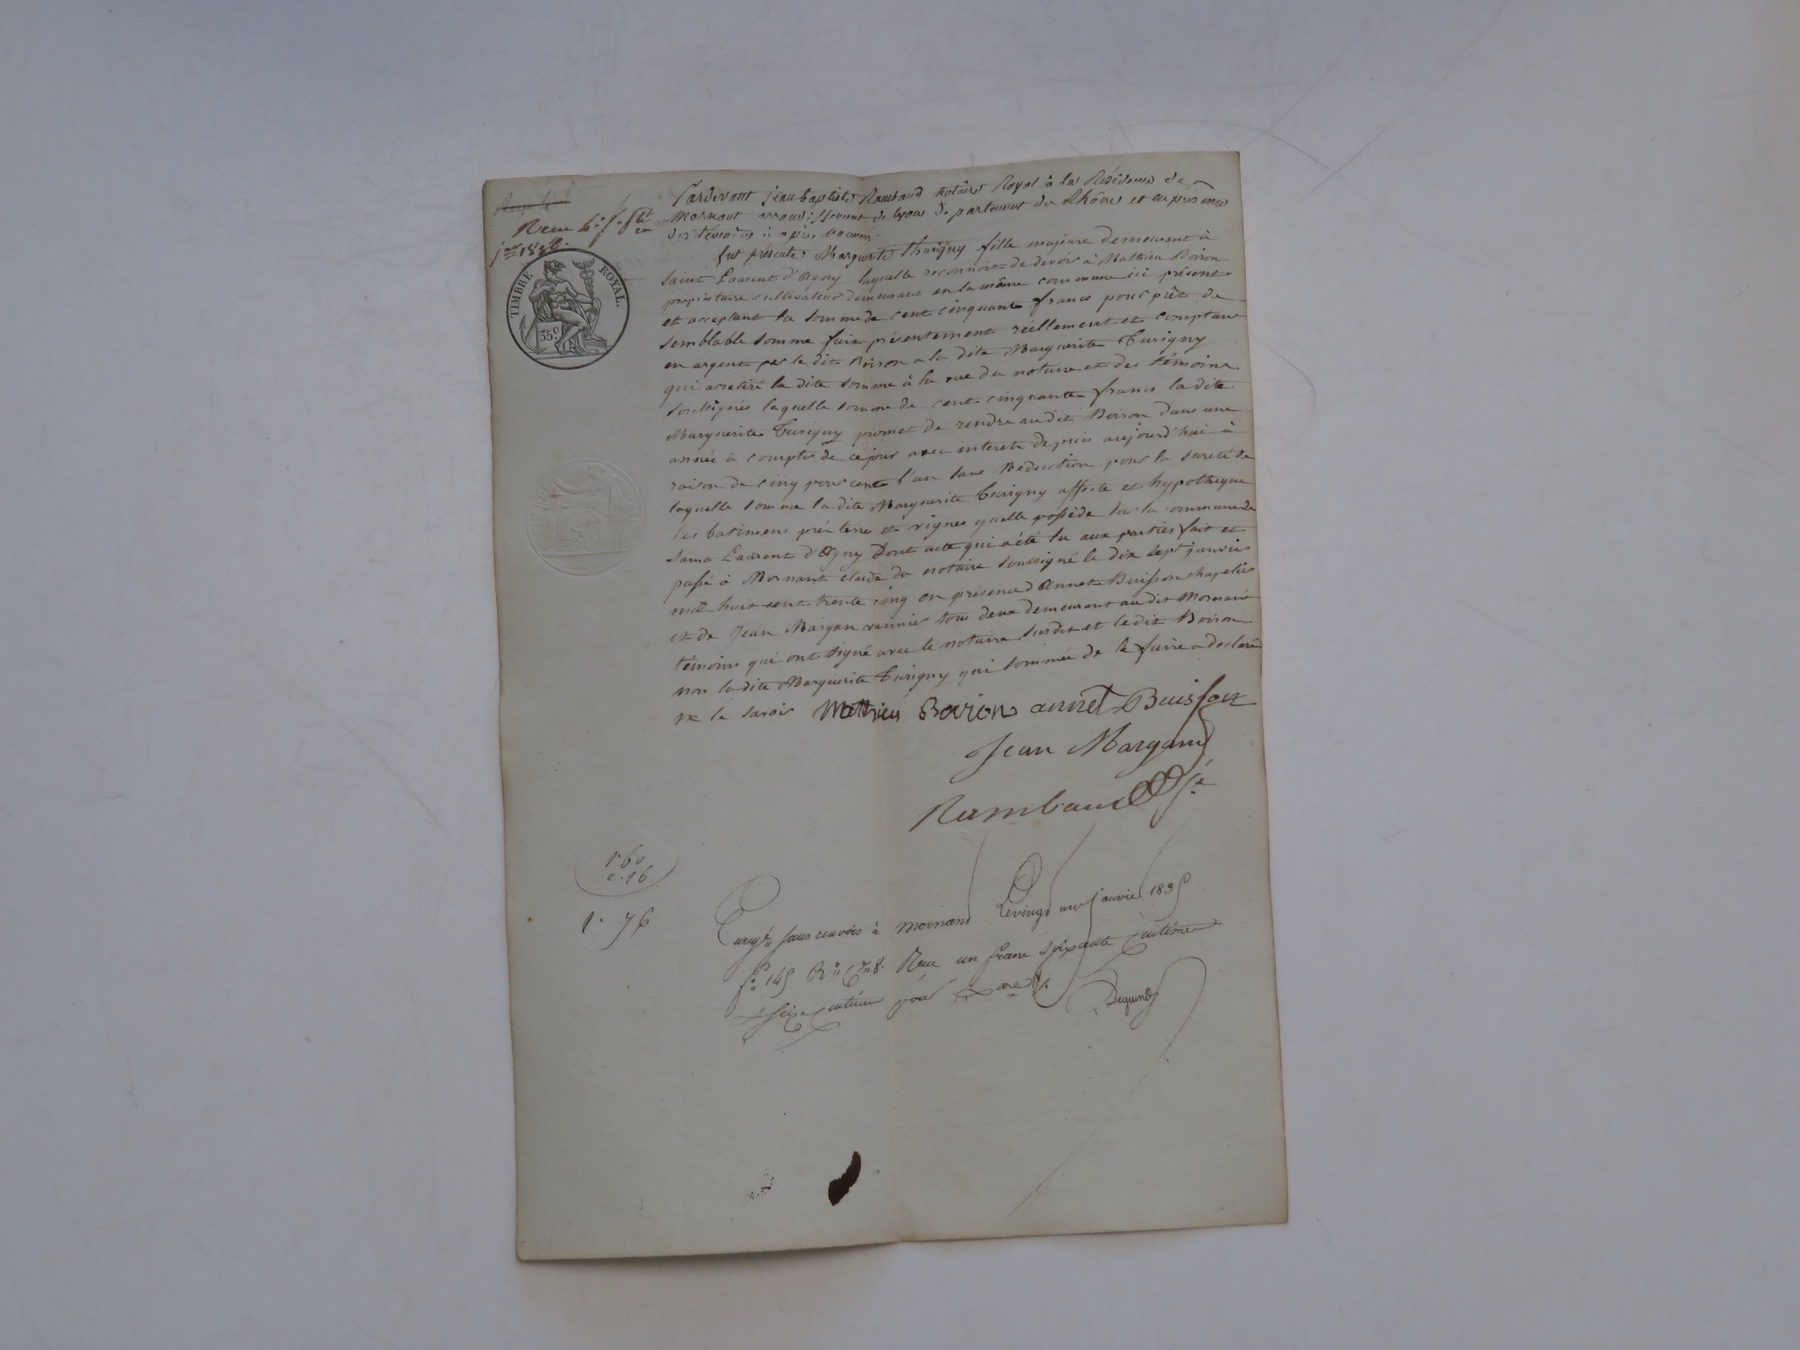 Pardevant jean baptiste Rambaud notaire Royal à la Résidence de
Mornant arrondissement de lyon département du Rhône et en présence
des témoins ci après nommés
fut présente Marguerite Thurigny fille majeure demeurant à
Saint Laurent d'Agny laquelle reconnoit de devoir à Mathieu Boiron
propriétaire cultivateur demeurant en la même commune ici présent
et acceptant la somme de cent cinquante francs pour prêt de
semblable somme fait présentement réellement et comptant
en argent par le dit Boiron a la dite Marguerite Turigny
qui a retiré la dite somme à la vue du notaire et des témoins
soussignés laquelle somme de cent cinquante francs la dite
Marguerite Turigny promet de rendre audit Boiron dans une
année à compter de ce jour avec interets depuis aujourd'hui à
raison de cinq pour cent l'an sans Réduction pour la sureté de
laquelle somme la dite Marguerite Turigny affecte et hypotheque
les batimens prés terres et vignes quelle possède sur la commune de
Saint Laurent d'Agny Dont acte qui a été lu aux parties fait et
passé à Mornant étude du notaire soussigné le dix sept janvier
mil huit cent trente cinq en présence d'annet Buisson chapelier
et de Jean Margan vannier tous deux demeurant au dit Mornant
témoins qui ont signé avec le notaire susdit et le dit Boiron
non la dite Marguerite Turigny qui sommée de le faire a déclaré
ne le savoir Mathieu Boiron annet Buisson
Jean Margand
Rambaud
TIMBRE ROYAL.
35 c
1. 60
0. 16
1. 76
Enregé sans renvois à mornant le vingt un janvier 1835
fo 145 Ro Recu un franc soixante centimes
et seize centimes pour